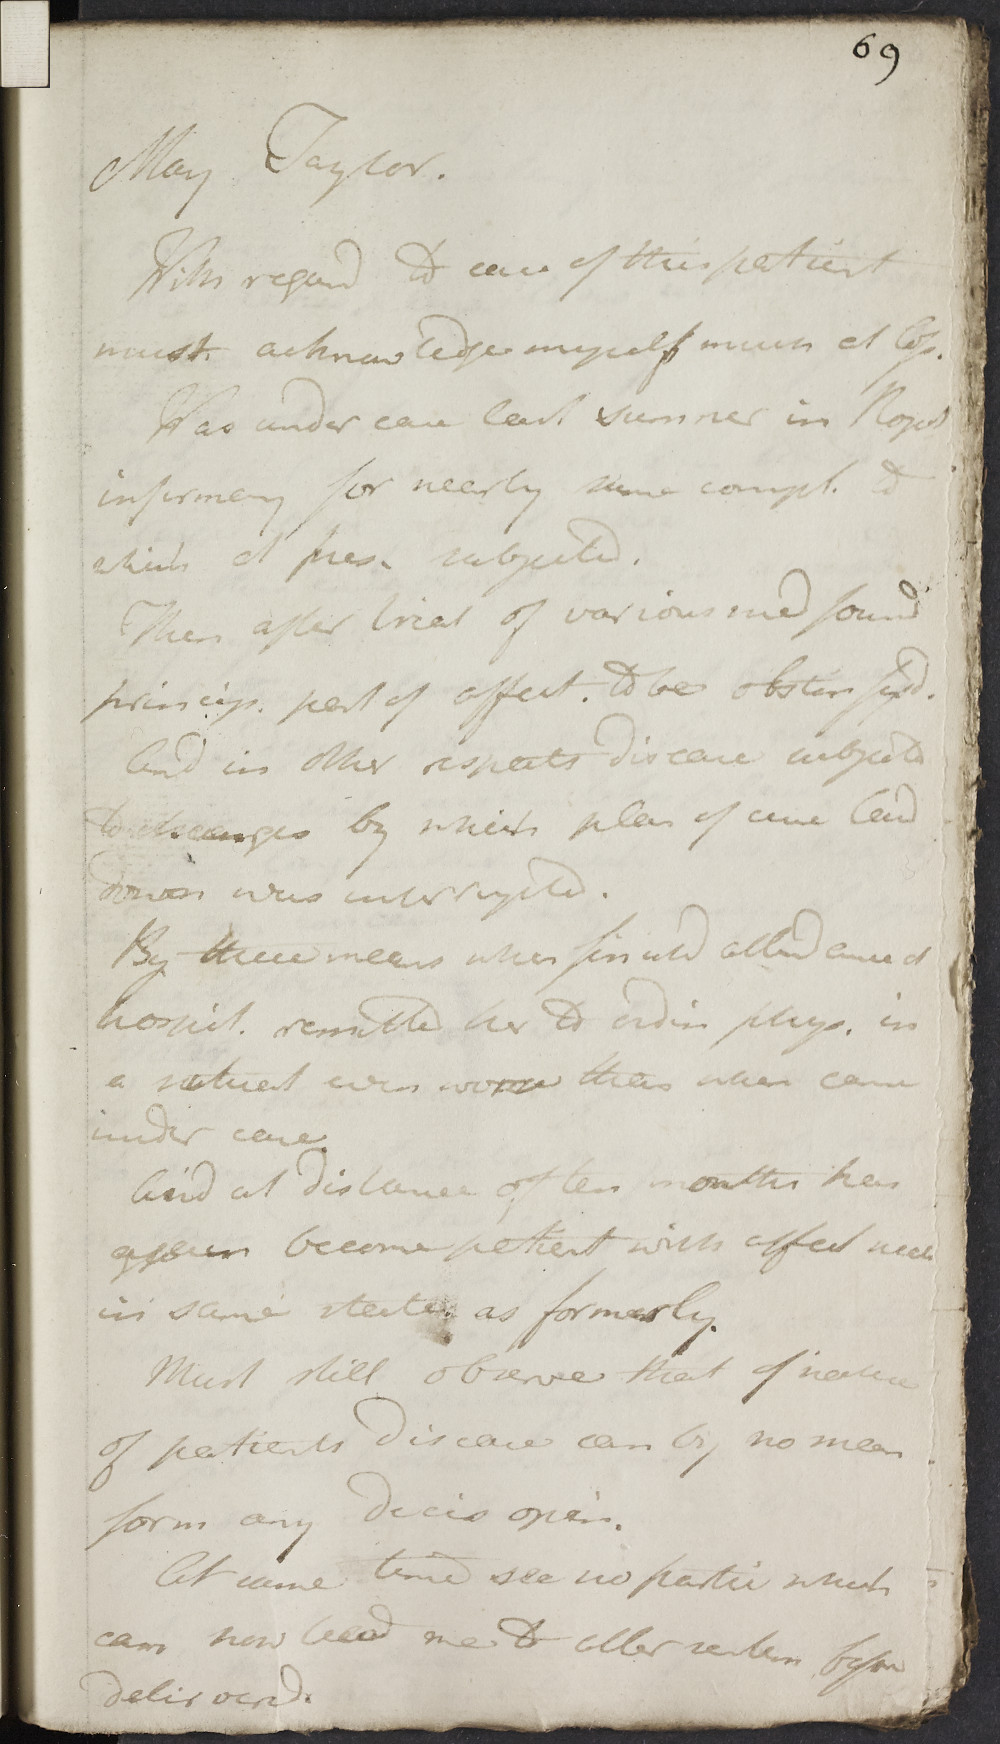 69
Mary Taylor.
With regard to case of this patient
must acknowledge myself much at loss.
Was under care last summer in Royal
infirmary for nearly same compl. to
which at pres. subjected.
Then after trial of various med found
princip. part of affect. to be obstin
And in other respects disease subjected
to changes by which plan of cure laid
down was interrupted.
By these means when finished attendance at
hospit. remitted her to ordin phys. in
a situat even worse than when came
under care.
And at distance of ten months has
again become patient with affect near
in same state as formerly.
Must still observe that of nature
of patients disease can by no mean
form any decis opin.
At same time see no partic which
can now lead me to alter sentim before
delivered.